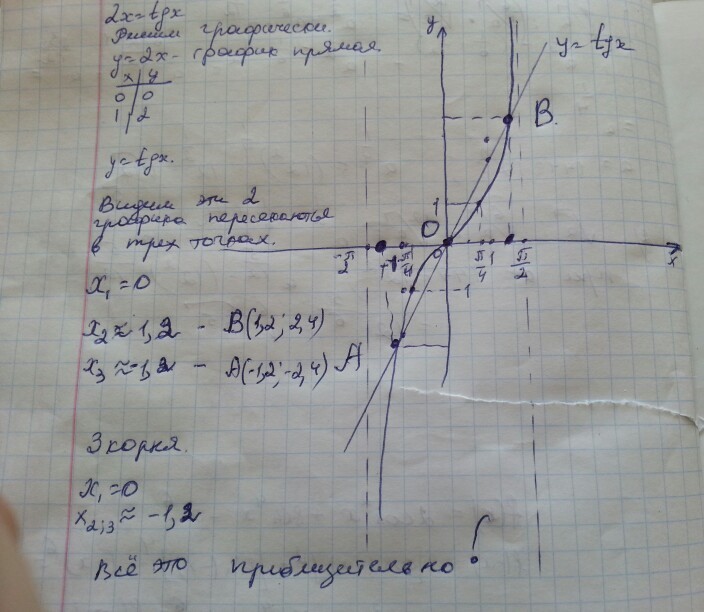 2x=tgx
Решим графически.
y=2x - график прямая
x | y
0 | 0
1 | 2
y=tgx.
Видим эти 2
графика пересекаются
в трех точках.
x₁=0
x₂≈1,2 - B(1,2; 2,4)
x₃≈-1,2 - A(-1,2; -2,4)
3 корня.
x₁=0
x₂;₃≈ -1,2
Всё это приблизительно!
y
y=tgx
B.
1
O
-π/2
-1
-π/4
0
π/4
1
π/2
x
-1
A